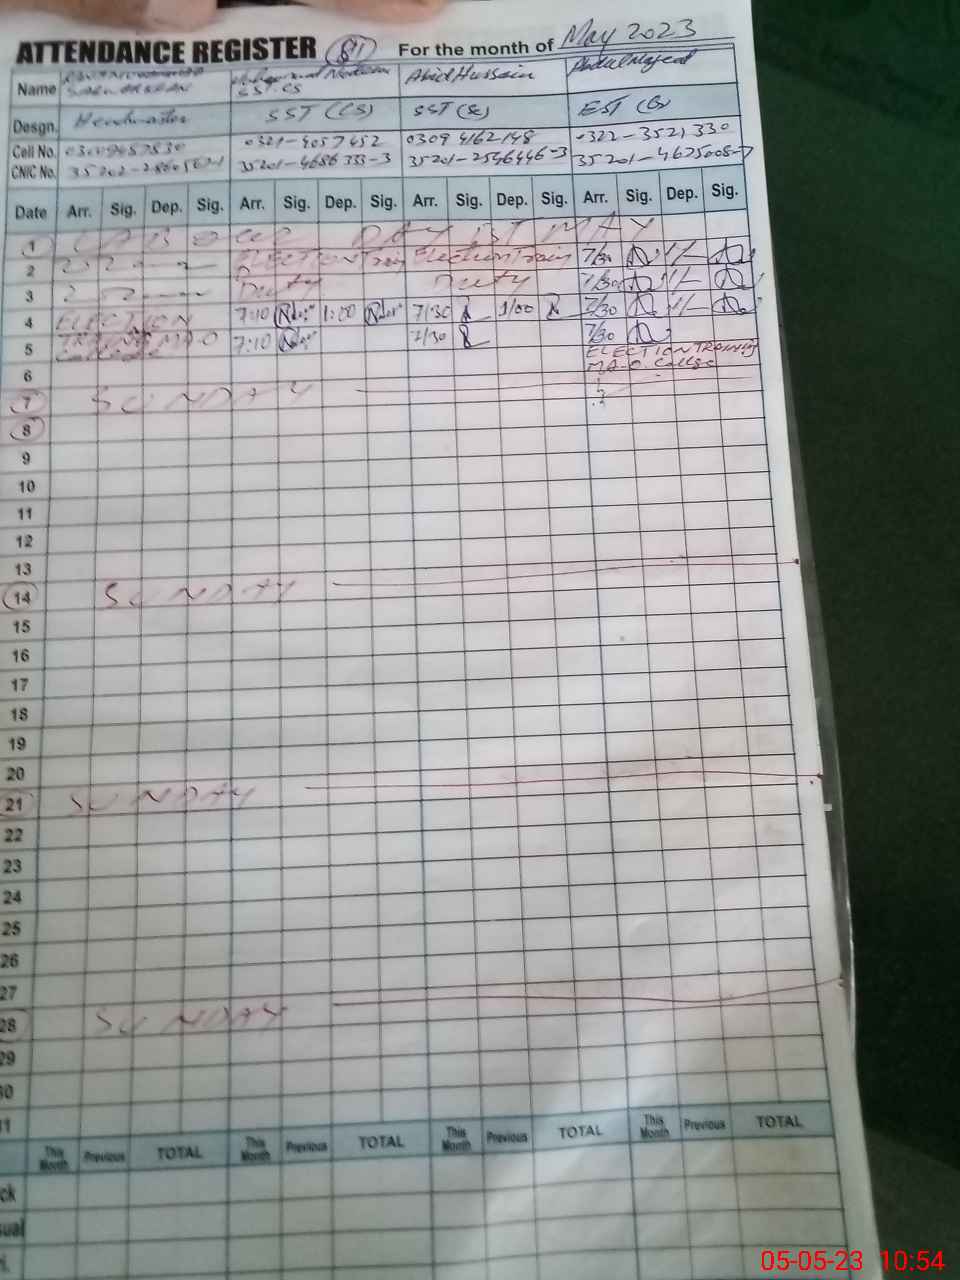 ATTENDANCE REGISTER For the month of May 2023
Name Abid Hussain Abdul Majeed
Desgn. Headmaster SST (CS) SST (Sc) EST
Cell No. 0321-4057452 0309 4162148 0322-3521330
CNIC No. 35201-4686333-3 35201-2546446-3 35201-4625008-7
Date Arr. Sig. Dep. Sig. Arr. Sig. Dep. Sig. Arr. Sig. Dep. Sig. Arr. Sig. Dep. Sig.
1 DAY 1ST MAY
2 ELECTION Election 7/30
3 Duty Duty 7/30
4 ELECTION 7:10 1:00 7/30 1/00 7/30
5 7:10 7/30 7/30
ELECTION TRAINING
6 M.A-O. College
7 SUNDAY
8
9
10
11
12
13
14 SUNDAY
15
16
17
18
19
20
21 SUNDAY
22
23
24
25
26
27
28 SUNDAY
29
30
31
This Month Previous TOTAL This Month Previous TOTAL This Month Previous TOTAL This Month Previous TOTAL
ck
sual
05-05-23 10:54